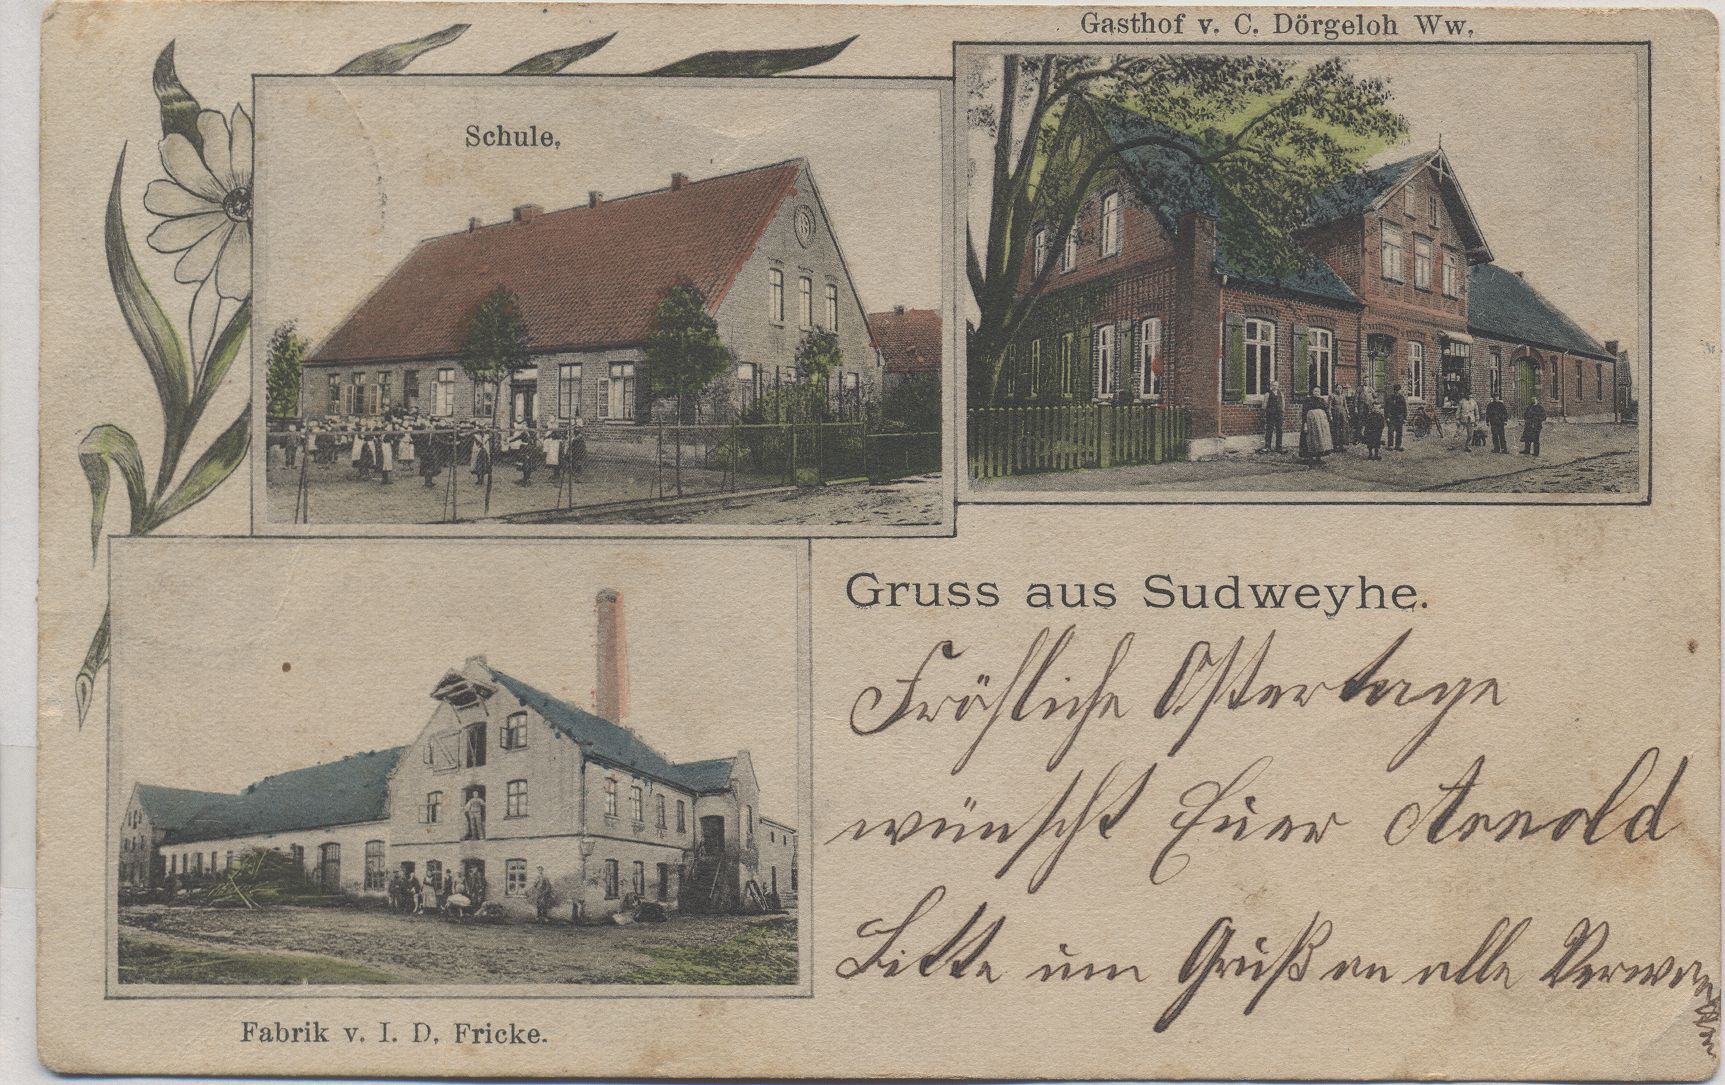 Gasthof v. C. Dörgeloh Ww.
Schule.
Gruss aus Sudweyhe.
Fröhliche Ostertage
wünscht Euer Arnold
Bitte um Gruß an alle Verwandten
Fabrik v. I. D. Fricke.